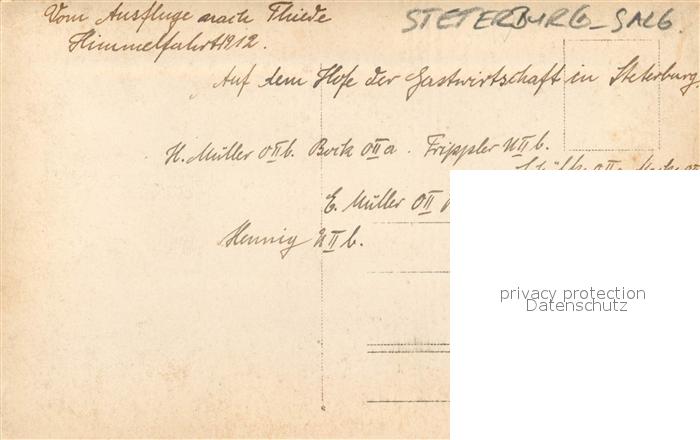 Vom Ausfluge nach Thiede
STETERBURG_SALG.
Himmelfahrt 1912.
Auf dem Hofe der Gastwirtschaft in Steterburg.
H. Müller OIIb. Bock OIIa. Trippler UIIb.
E. Müller OII
Hennig UIIb.
privacy protection
Datenschutz